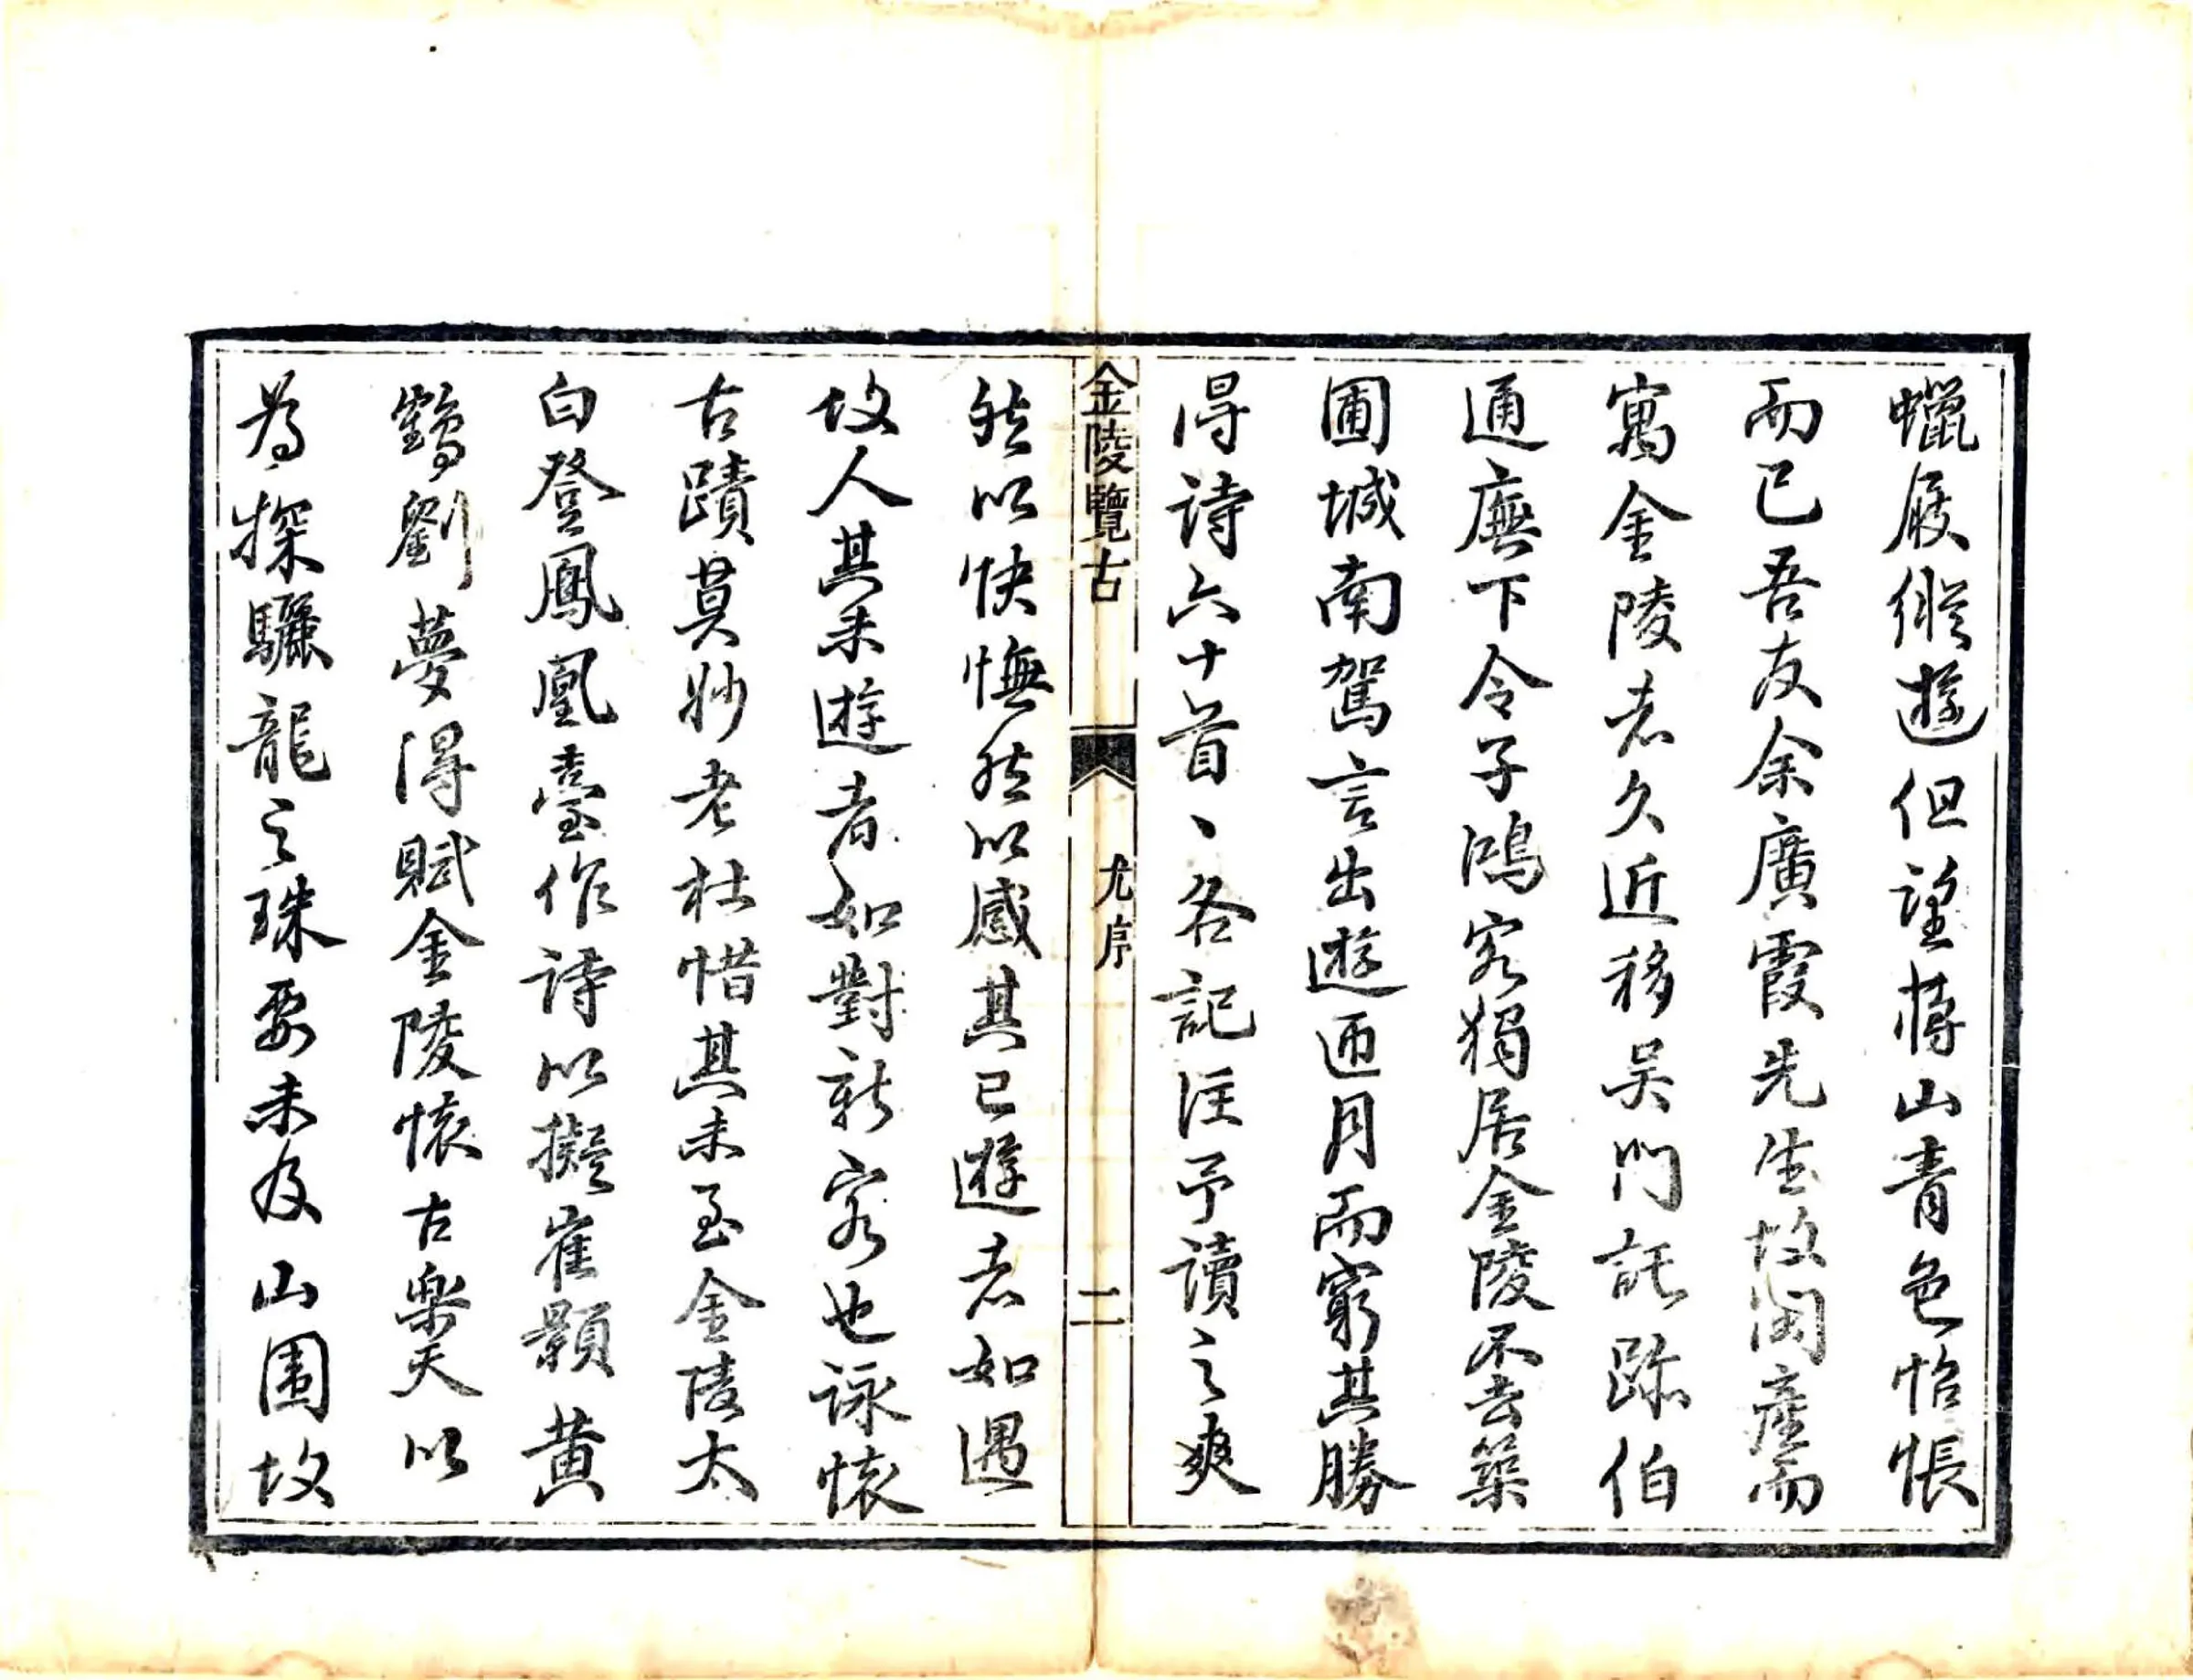 蠟屐縱遊但望蔣山青色怡悵
而已吾友余廣霞先生故閩產而
寓金陵者久近移吴門託跡伯
通廡下令子鴻客獨居金陵不去築
圃城南駕言出遊迊月而窮其勝
得詩六十首丶各記注予讀之爽
金陵覽古
尤序
二
然以快憮然以感其已遊者如遇
故人其未遊者如對新客也詠懷
古蹟莫妙老杜惜其未至金陵太
白登鳳凰臺作詩以擬崔顥黄
鶴劉夢得賦金陵懷古樂天以
為探驪龍之珠要未及山圍故